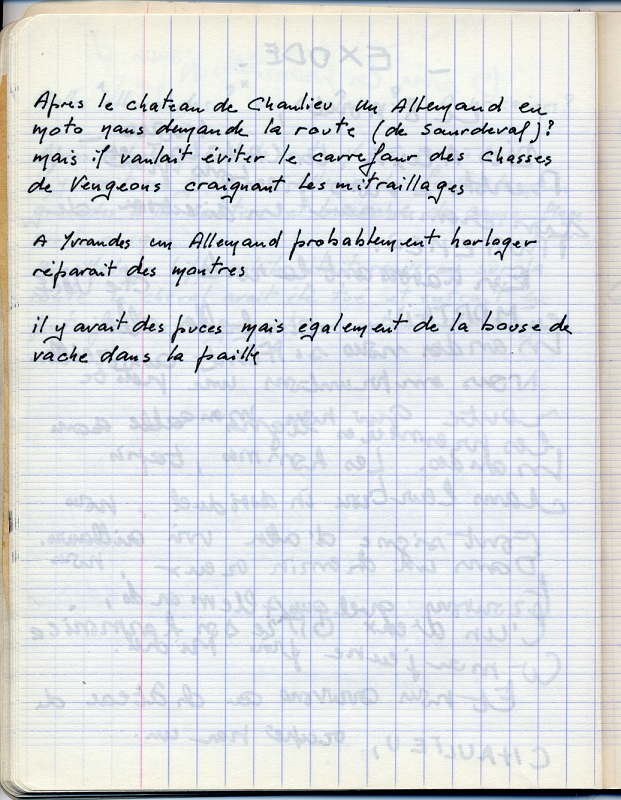 Après le chateau de Chaulieu un Allemand en
moto nous demande la route (de Sourdeval)?
mais il voulait éviter le carrefour des Chasses
de Vengeons craignant les mitraillages
A Yvrandes un Allemand probablement horloger
réparait des montres
il y avait des puces mais également de la bouse de
vache dans la paille